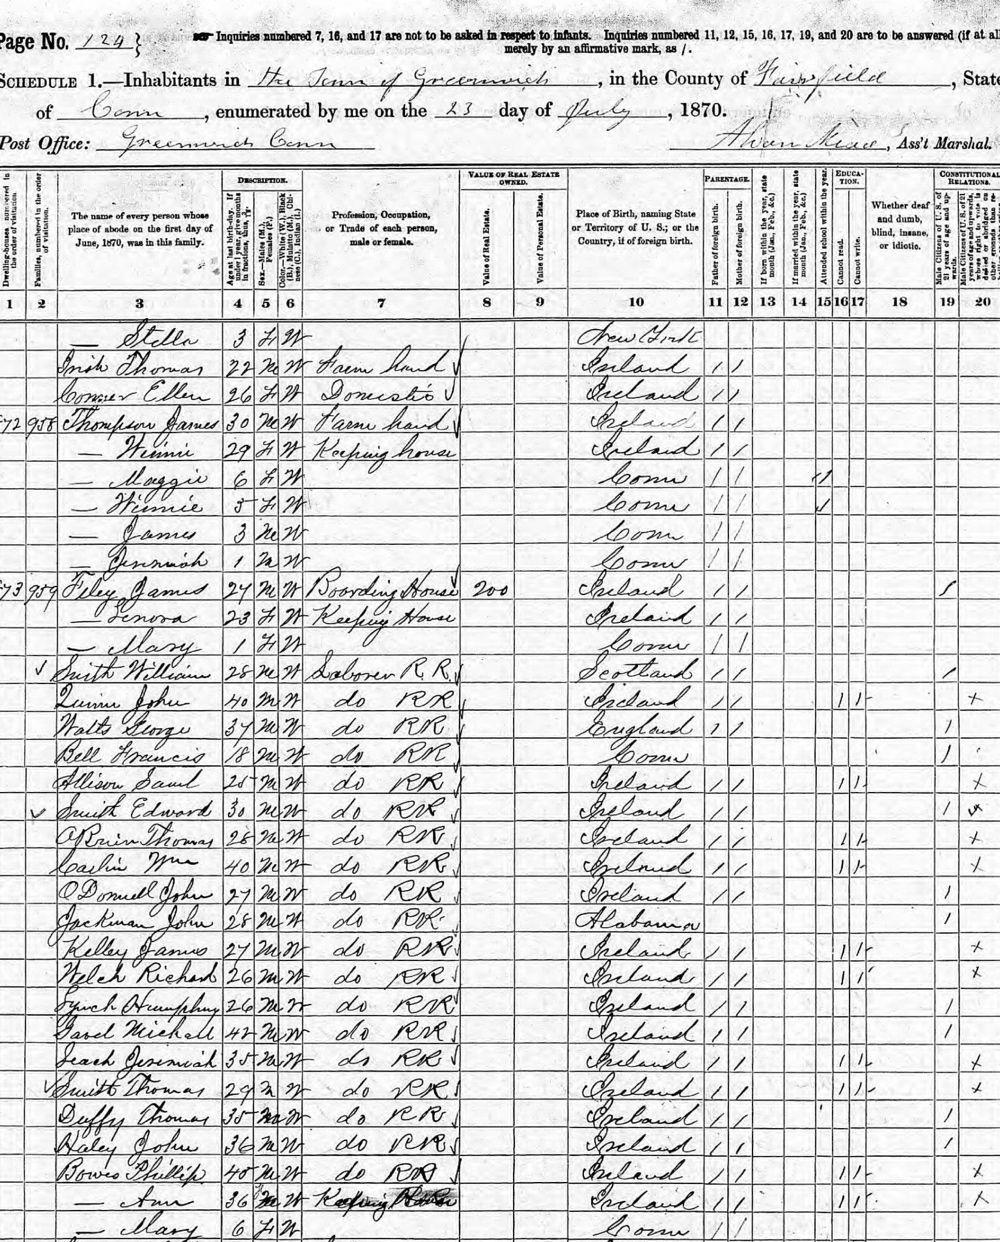 Page No. 124}
Inquiries numbered 7, 16, and 17 are not to be asked in respect to infants. Inquiries numbered 11, 12, 15, 16, 17, 19, and 20 are to be answered (if at all
merely by an affirmative mark, as /.
SCHEDULE 1.—Inhabitants in the Town of Greenwich, in the County of Fairfield, State
of Conn, enumerated by me on the 23 day of July, 1870.
Post Office: Greenwich Conn Alvan Mead, Ass't Marshal.
DESCRIPTION. VALUE OF REAL ESTATE OWNED. PARENTAGE. EDUCATION. CONSTITUTIONAL RELATIONS.
Dwelling-houses numbered in the order of visitation. Families, numbered in the order of visitation. The name of every person whose place of abode on the first day of June, 1870, was in this family. Age at last birth-day. Sex.—Males (M.), Females (F.) Profession, Occupation, or Trade of each person, male or female. Value of Real Estate. Value of Personal Estate. Place of Birth, naming State or Territory of U. S.; or the Country, if of foreign birth. Father of foreign birth. Mother of foreign birth. If born within the year, state month (Jan., Feb., &c.) If married within the year, state month (Jan., Feb., &c.) Attended school within the year. Cannot read. Cannot write. Whether deaf and dumb, blind, insane, or idiotic.
1 2 3 4 5 6 7 8 9 10 11 12 13 14 15 16 17 18 19 20
— Stella 3 F W New York
Thomas 22 M W Farm hand Ireland / /
Conner Ellen 26 F W Domestic Ireland / /
72 958 Thompson James 30 M W Farm hand Ireland / /
— Winnie 29 F W Keeping house Ireland / /
— Maggie 6 F W Conn / / /
— Winnie 5 F W Conn / / /
— James 3 M W Conn / /
— Jeremiah 1 M W Conn / /
73 959 James 27 M W Boarding House 200 Ireland / / /
— 23 F W Keeping House Ireland / /
— Mary 1 F W Conn / /
Smith William 28 M W Laborer R R Scotland / / /
Quinn John 40 M W do RR Ireland / / / / x
Watts George 37 M W do RR England / / /
Bell Francis 18 M W do RR Conn /
Allison Saml 25 M W do RR Ireland / / / / x
Smith Edward 30 M W do RR Ireland / / /
OBrien Thomas 28 M W do RR Ireland / / / / x
Wm 40 M W do RR Ireland / / / / x
ODonnell John 27 M W do RR Ireland / / /
Jackman John 28 M W do RR Alabama /
Kelley James 27 M W do RR Ireland / / / / x
Welch Richard 26 M W do RR Ireland / / / / x
Lynch Humphrey 26 M W do RR Ireland / / /
Michael 42 M W do RR Ireland / / /
Leach Jeremiah 35 M W do RR Ireland / / / / x
Smith Thomas 29 M W do RR Ireland / / / / x
Duffy Thomas 35 M W do RR Ireland / / /
Haley John 36 M W do RR Ireland / / /
Bowes Phillip 40 M W do RR Ireland / / / / x
— Ann 36 W Keeping House Ireland / / / / x
— Mary 6 F W Conn / /